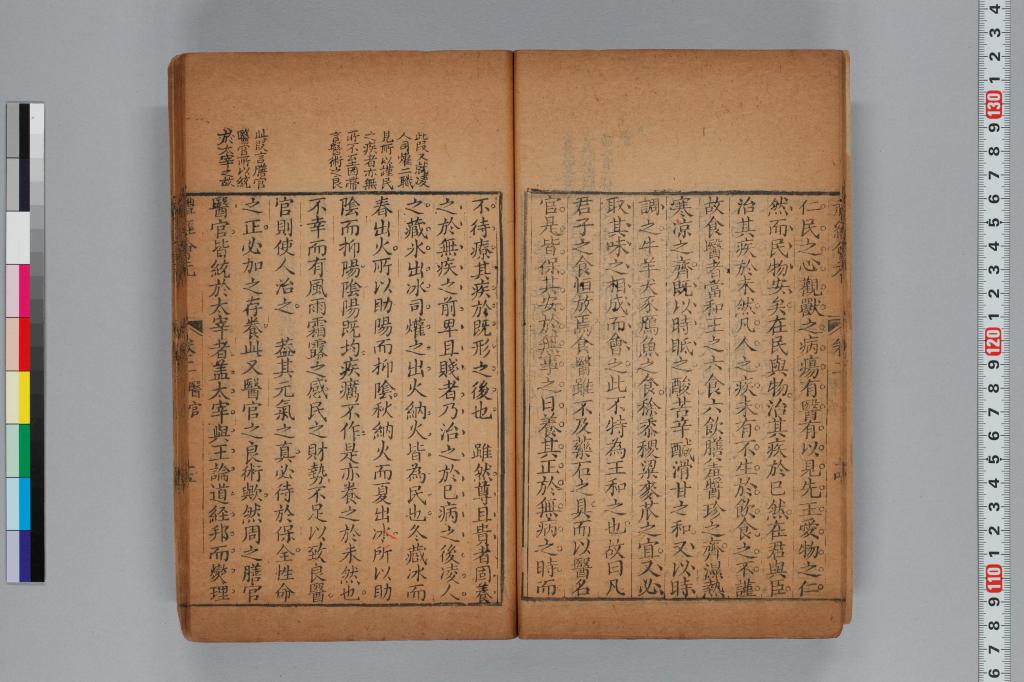 仁民之心觀獸之病瘍有醫有以見先王愛物之仁
然而民物安矣在民與物治其疾於已然在君與臣
治其疾於未然凡人之疾未有不生於飲食之不謹
故食醫者當和王之六食六飲膳羞醬珍之齊濕熱
寒凉之齊既以時眡之酸苦辛鹹滑甘之和又以時
調之牛羊犬豕鴈魚之食稌黍稷粱麥苽之宜又必
取其味之相成而會之此不特為王和之也故曰凡
君子之食恒放焉食醫雖不及藥石之具而以醫名
官是皆保其安於無事之日養其正於無病之時而
不待療其疾於既形之後也 雖然尊且貴者固養
之於無疾之前卑且賤者乃治之於已病之後凌人
之藏氷出冰司爟之出火納火皆為民也冬藏冰而
春出火所以助陽而抑陰秋納火而夏出冰所以助
陰而抑陽陰陽既均疾癘不作是亦養之於未然也
不幸而有風雨霜露之感民之財勢不足以致良醫
官則使人治之 葢其元氣之真必待於保全性命
之正必加之存養此又醫官之良術歟然周之膳官
醫官皆統於太宰者盖太宰與王論道經邦而燮理
此段又就凌
人司爟二職
見所以謹民
之疾者亦無
所不至而帶
言醫術之良
此段言膳官
醫官所以統
於太宰之故
卷二醫官